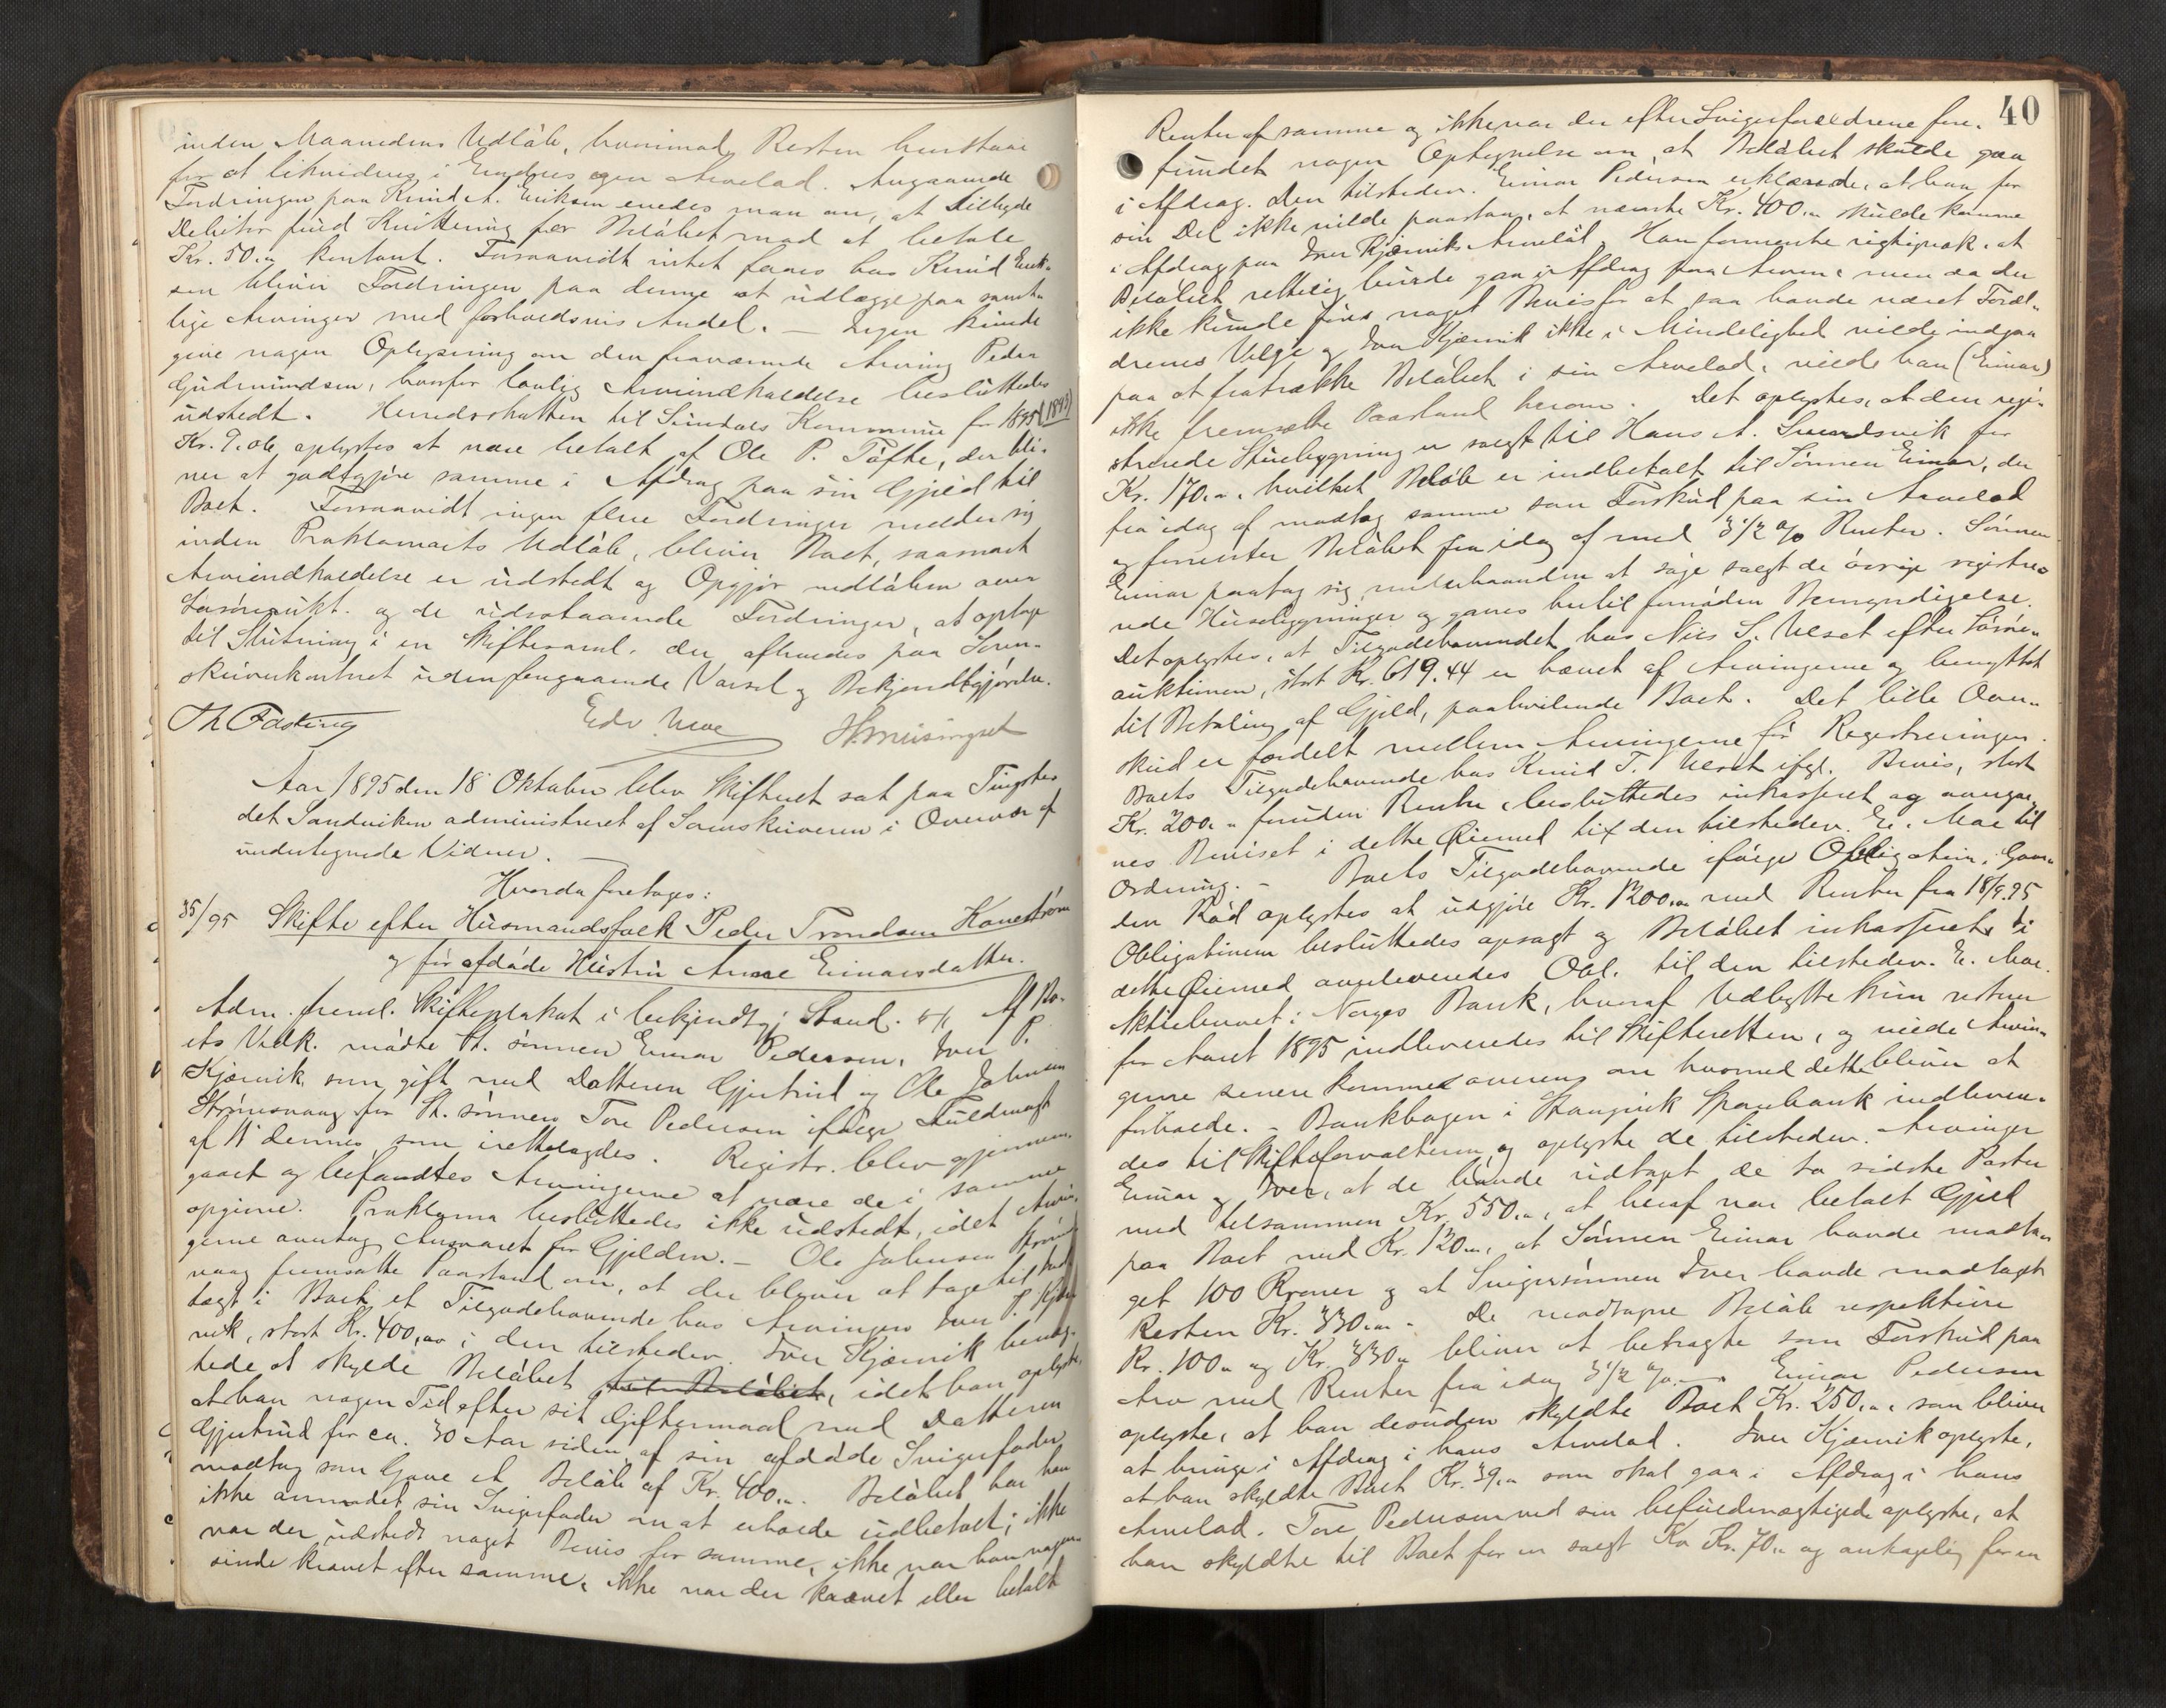 inden Maanedens Udløb, hvorimod Resten henstaar
for at likvideres i Endres egen Arvelod. Angaaende
Fordringen paa Knud A. Eriksen enedes man om, at tilbyde
Debitor fuld Kvittering for Beløbet mod at betale
Kr. 50,„ kontant. Forsaavidt intet faaes hos Knud Erik-
sen bliver Fordringen paa denne at udlægge paa samt-
lige Arvinger med forholdsvis Andel. — Ingen kunde
give nogen Oplysning om den fraværende Arving Peder
Gudmundsen, hvorfor lovlig Arveindkaldelse besluttedes
udstedt. Herredsskatten til Sundals Kommune for 1895 (1893)
Kr. 9,06 oplystes at være betalt af Ole P. Tøfte, der bli-
ver at godtgjøre samme i Afdrag paa sin Gjæld til
Boet. Forsaavidt ingen flere Fordringer melder sig
inden Proklamaets Udløb, bliver Boet, saasnart
Arveindkaldelse er udstedt og Opgjør vedløben over
Løsøreaukt. og de udestaaende Fordringer, at optage
til Slutning i en Skiftesaml. der afholdes paa Soren-
skriverkontoret uden foregaaende Varsel og Bekjendtgjørelse.
Th Fasting
Edv. Moe
H. Meisingset
Aar 1895 den 18 Oktober blev Skifteret sat paa Tingste-
det Sandviken administreret af Sorenskriveren i Overvær af
undertegnede Vidner.
Hvorda foretoges:
35/95 Skifte efter Husmandsfolk Peder Trondsen Kanestrøm
og før afdøde Hustru Anne Einarsdatter.
Adm. freml. Skifteplakat i bekjendtgj. Stand. Af Bo-
ets Vedk. mødte St. sønnen Einar Pedersen, Iver P.
Kjærvik som gift med Datteren Gjertrud og Ole Johnsen
Strømsvaag for St. sønnen Tore Pedersen ifølge Fuldmagt
af 11' dennes som irettelagdes. Registr. blev gjennem-
gaaet og befandtes Arvingerne at være de i samme
opgivne. Proklama besluttedes ikke udstedt, idet Arvin-
gerne overtog Ansvaret for Gjelden. — Ole Johnsen Strøms-
vaag fremsatte Paastand om, at der bliver at tage til Ind-
tægt i Boet et Tilgodehavende hos Arvingen Iver P. Kjær-
vik, stort Kr. 400,00 i den tilstedev. Iver Kjærvik benæg-
tede at skylde Beløbet, idet han oplyste,
at han nogen Tid efter sit Giftermaal med Datteren
Gjertrud for ca. 30 Aar siden af sin afdøde Svigerfader
modtog som Gave et Beløb af Kr. 400,„. Beløbet har han
ikke anmodet sin Svigerfader om at erholde udbetalt; ikke
var der udstedt noget Bevis for samme, ikke var han nogen-
sinde krævet efter samme, ikke var der krævet eller betalt
40
Renter af samme og ikke var der efter Svigerforældrene fore-
fundet nogen Optegnelse om, at Beløbet skulde gaa
i Afdrag. Den tilstedev. Einar Pedersen erklærede, at han for
sin Del ikke vilde paastaa, at nævnte Kr. 400,„ skulde komme
i Afdrag paa Iver Kjærviks Arvelod. Han formente rigtignok, at
Beløbet rettelig burde gaa i Afdrag paa Arven, men da der
ikke kunde føres noget Bevis for at saa havde været Foræl-
drenes Vilje og Iver Kjærvik ikke i Mindelighed vilde indgaa
paa at fratrække Beløbet i sin Arvelod, vilde han (Einar)
ikke fremsætte Paastand herom. Det oplystes, at den regi-
strerede Stuebygning er solgt til Hans A. Svendsvik for
Kr. 170,„, hvilket Beløb er indbetalt til Sønnen Einar, der
fra idag af modtog samme som Forskud paa sin Arvelod
og forrenter Beløbet fra idag af med 3 1/2 % Renter. Sønnen
Einar paatog sig underhaanden at søge solgt de øvrige registre-
rede Husebygninger og gaves hertil fornøden Bemyndigelse.
Det oplystes, at Tilgodehavendet hos Nils S. Ulset efter Løsøre-
auktionen, stort Kr. 619.44 er hævet af Arvingerne og benyttet
til Betaling af Gjæld, paahvilende Boet. Det lille Over-
skud er fordelt mellem Arvingerne før Registreringen.
Boets Tilgodehavende hos Knud T. Ulset ifgl. Bevis, stort
Kr. 200,„ foruden Renter besluttedes inkasseret og overgav-
ves Beviset i dette Øiemed til den tilstedev. E. Moe til
Ordning. — Boets Tilgodehavende ifølge Obligation,
den Rød oplystes at udgjøre Kr. 1200,00 med Renter fra 18/9.95
Obligationen besluttedes opsagt og Beløbet inkasseret, i
dette Øiemed overleveredes Obl. til den tilstedev. E. Moe.
Aktiebrevet i Norges Bank, hvoraf Udbytte kun resterer
for Aaret 1895 indleveredes til Skifteretten, og vilde Arvin-
gerne senere komme overens om hvormed dette bliver at
forholde. — Bankbogen i Stangvik Sparebank indlevere-
des til Skifteforvalteren og oplyste de tilstedev. Arvinger
Einar og Iver, at de havde udtaget de to sidste Poster
med tilsammen Kr. 550,„, at heraf var betalt Gjæld
paa Boet med Kr. 120,„, at Sønnen Einar havde modta-
get 100 Kroner og at Svigersønnen Iver havde modtaget
Resten Kr. 330,„. De modtagne Beløb respektive
Kr. 100,„ og Kr. 330,„ bliver at betragte som Forskud paa
Arv med Renter fra idag 3 1/2 %. — Einar Pedersen
oplyste, at han desuden skyldte Boet Kr. 250,„, som bliver
at bringe i Afdrag i hans Arvelod. Iver Kjærvik oplyste,
at han skyldte Boet Kr. 39,„ som skal gaa i Afdrag i hans
Arvelod. Tore Pedersen ved sin befuldmægtigede oplyste, at
han skyldte til Boet for en solgt Ko Kr. 70,„ og antagelig for en